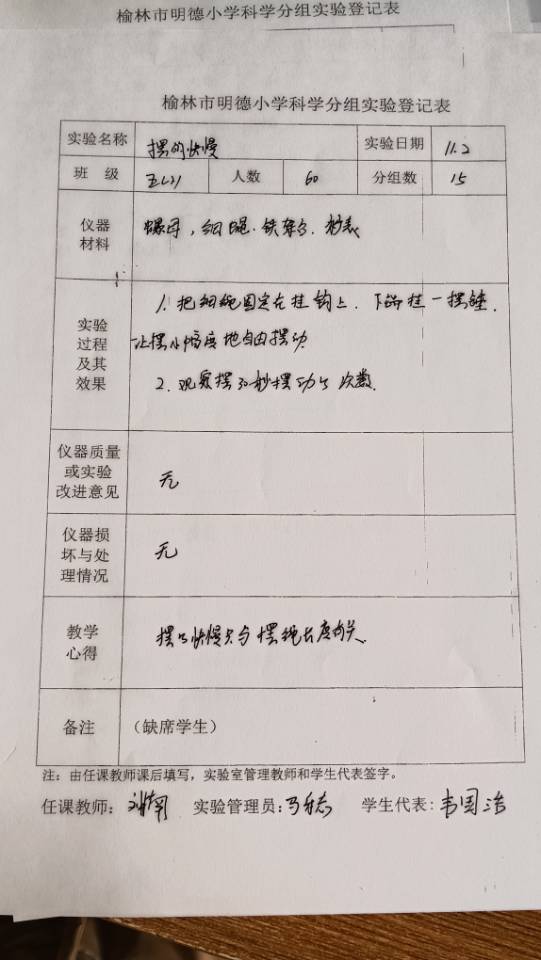 榆林市明德小学科学分组实验登记表
榆林市明德小学科学分组实验登记表
实验名称 摆的快慢 实验日期 11.2
班 级 五(2) 人数 60 分组数 15
仪器材料 螺母，细绳、铁架台、秒表
实验过程及其效果
1. 把细绳固定在挂钩上、下部挂一摆锤，
让摆小幅度地自由摆动
2. 观察摆30秒摆动的次数
仪器质量或实验改进意见 无
仪器损坏与处理情况 无
教学心得 摆的快慢只与摆绳长度有关
备注 （缺席学生）
注：由任课教师课后填写，实验室管理教师和学生代表签字。
任课教师： 实验管理员： 学生代表：韦国治